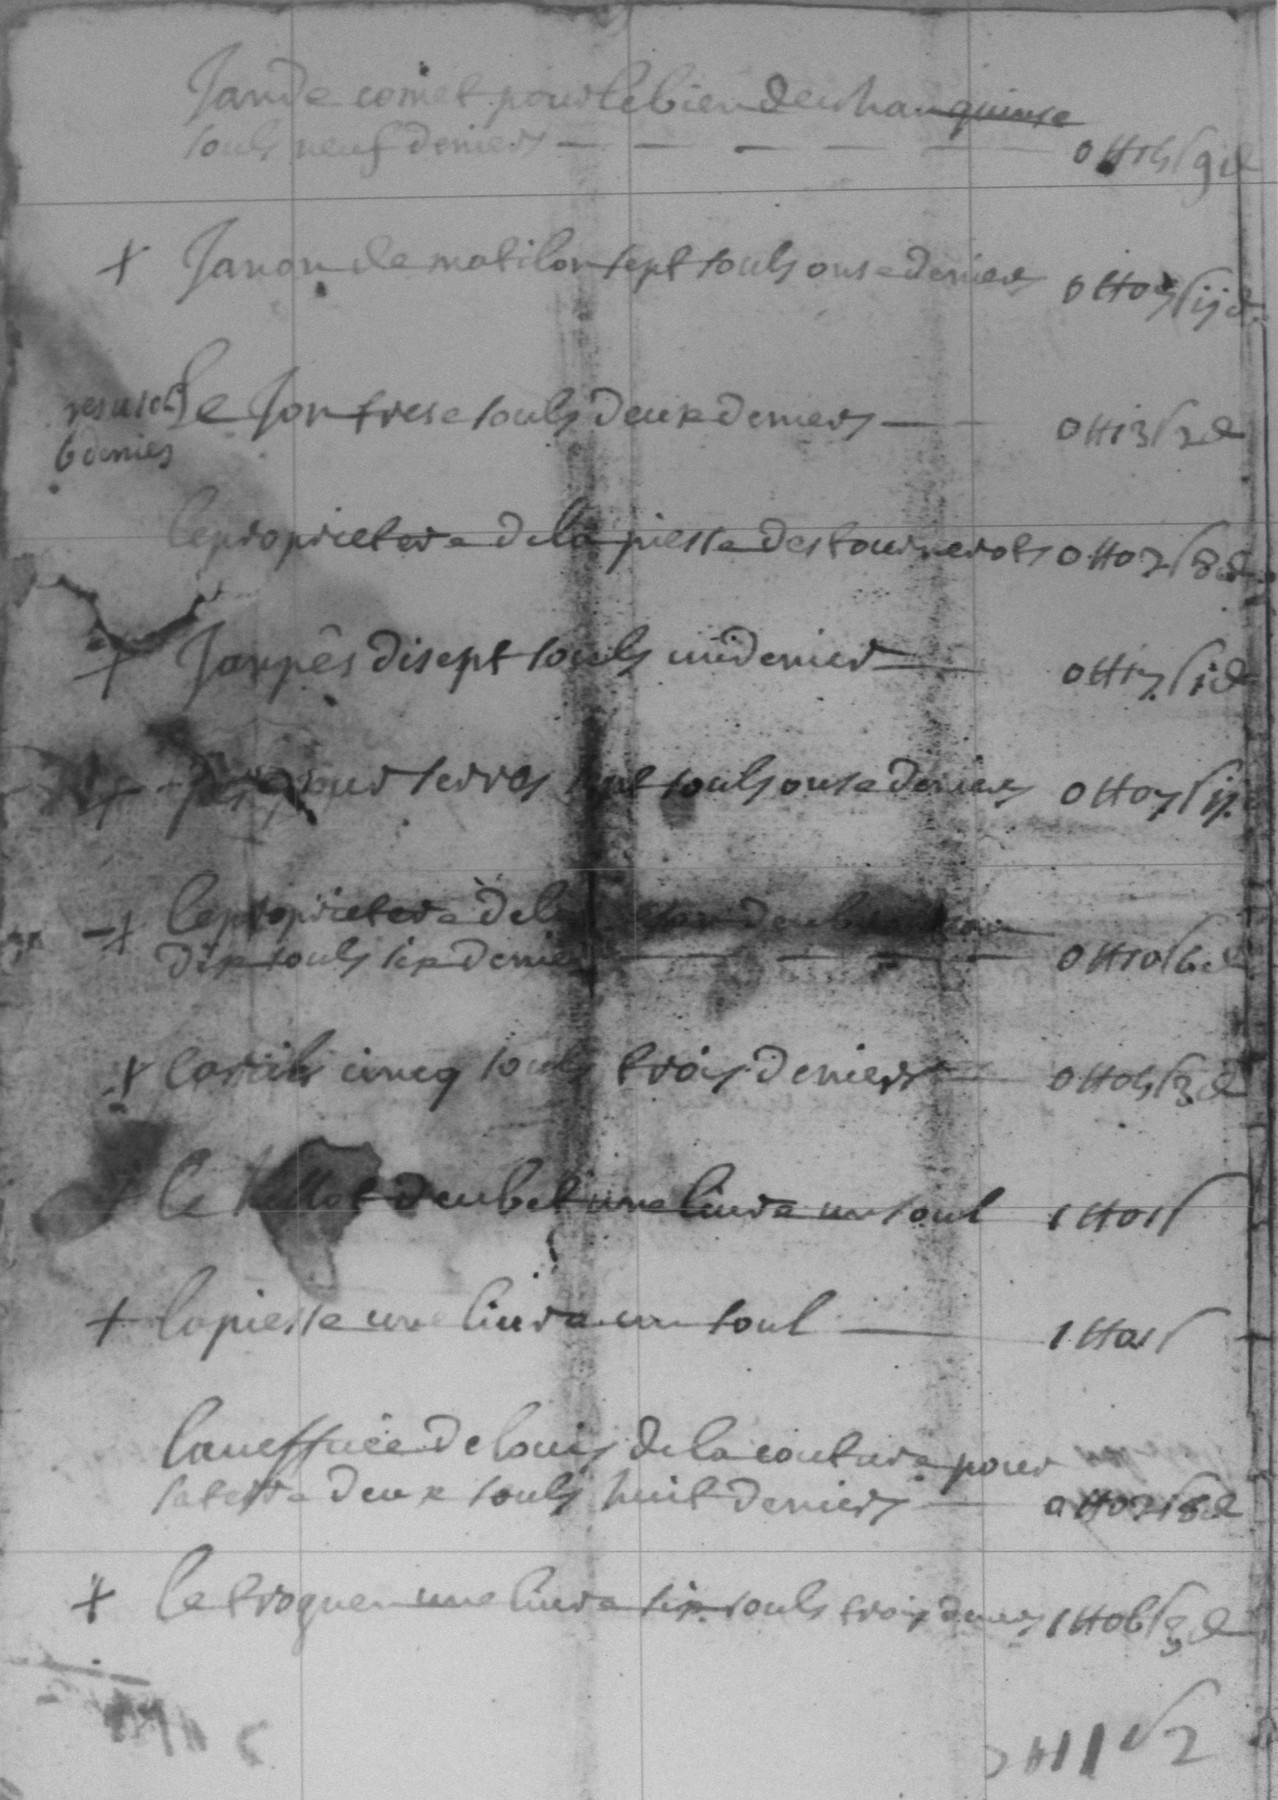 Jande comet pour le bien deuhau quinse
souls neuf deniers 0 ₶ 15 s 9 d
+ Janon de matilon sept souls onse deniers 0 ₶ 07 s 11 d
resu 10 s
6 deniers
le Jon trese souls deux deniers 0 ₶ 13 s 2 d
le proprietere de la piesse des tournerots 0 ₶ 02 s 8 d
+ Janpês disept souls un denier 0 ₶ 17 s 1 d
+ pour terres sept souls onse deniers 0 ₶ 07 s 11
+ le proprietere de
dix souls six deniers 0 ₶ 10 s 6 d
+ cincq souls trois deniers 0 ₶ 05 s 3 d
le deubet une liure un soul 1 ₶ 01 s
+ lapiesse une liure un soul 1 ₶ 01 s
de louis de la couture pour
sa terre deux souls huit deniers 0 ₶ 02 s 8 d
+ le troquen une liure six souls trois deniers 1 ₶ 06 s 3 d
11 s 2